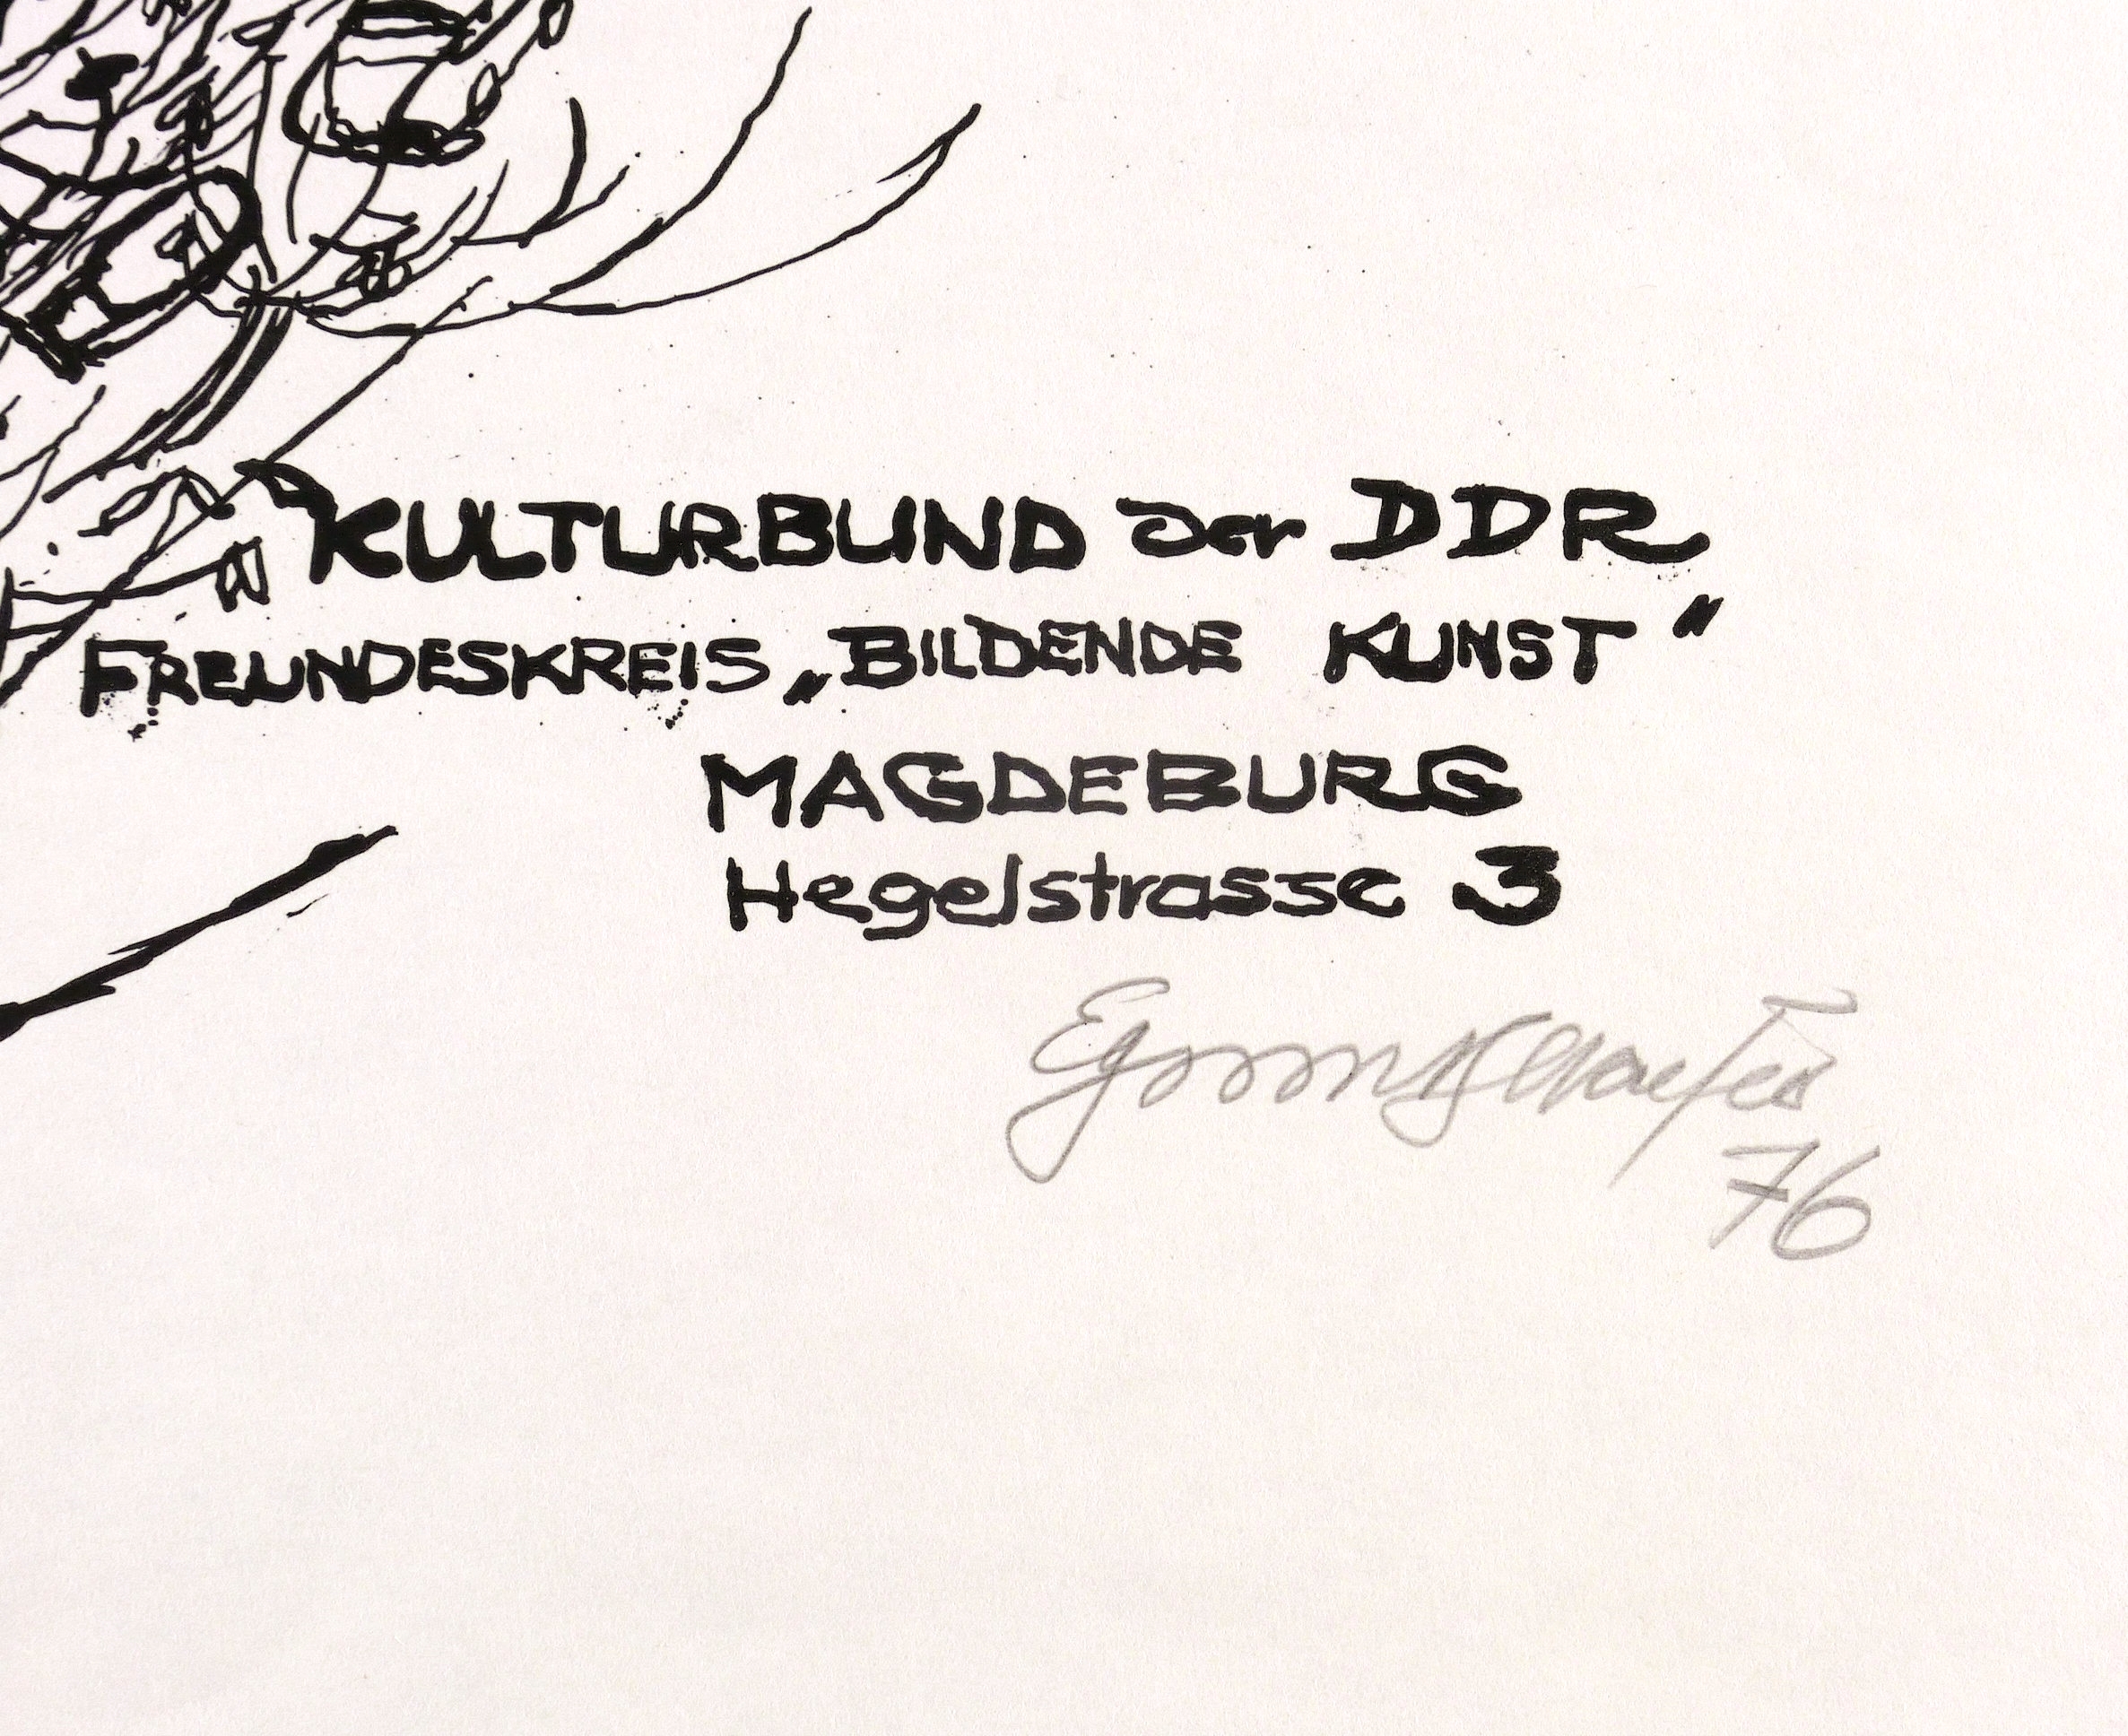 KULTURBUND der DDR
FREUNDESKREIS „BILDENDE KUNST“
MAGDEBURG
Hegelstrasse 3
76